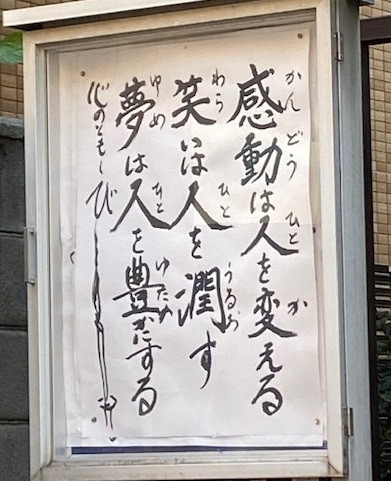 感動は人を変える
笑いは人を潤す
夢は人を豊かにする
心のともしび